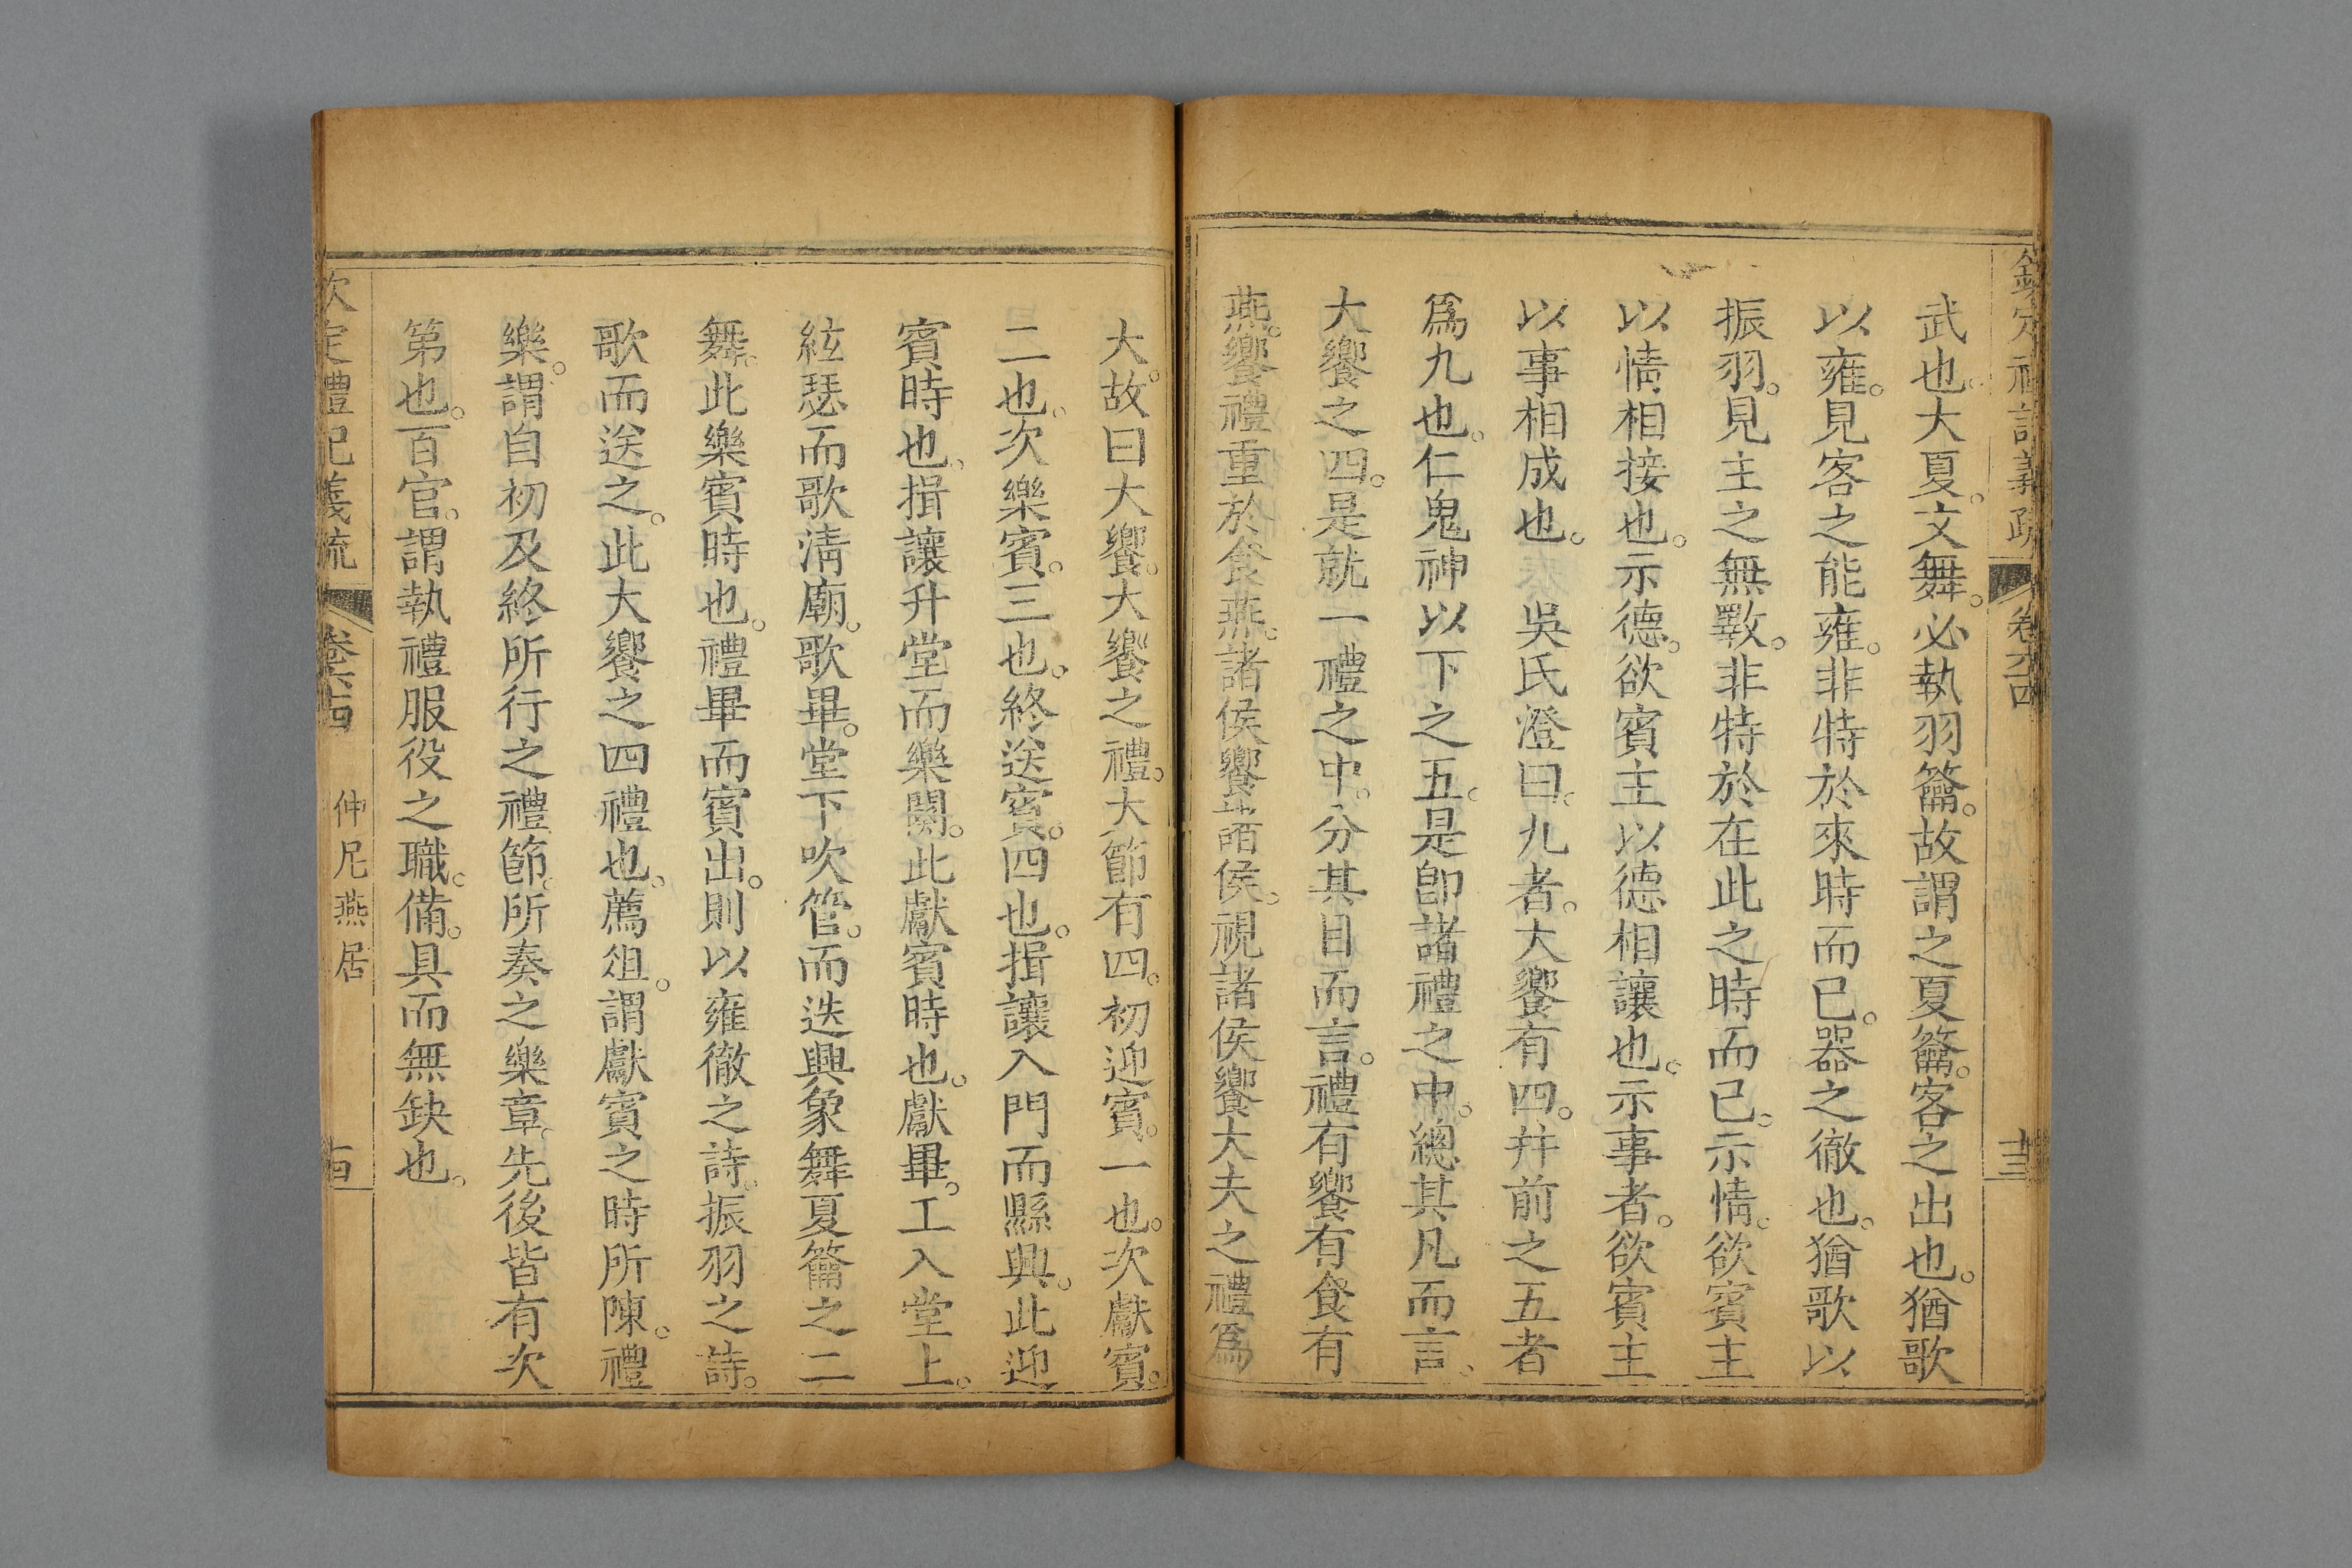 欽定禮記義疏 卷六十四 十三
武也。大夏。文舞。必執羽籥。故謂之夏籥。客之出也。猶歌
以雍。見客之能雍。非特於來時而已。器之徹也。猶歌以
振羽。見主之無斁。非特於在此之時而已。示情。欲賓主
以情相接也。示德。欲賓主以德相讓也。示事者。欲賓主
以事相成也。 吳氏澄曰。九者。大饗有四。幷前之五者
爲九也。仁鬼神以下之五。是卽諸禮之中。總其凡而言、
大饗之四。是就一禮之中。分其目而言。禮有饗有食有
燕。饗禮重於食燕。諸侯饗諸侯。視諸侯饗大夫之禮爲
大。故曰大饗。大饗之禮。大節有四。初迎賓。一也。次獻賓。
二也。次樂賓。三也。終送賓。四也。揖讓入門而縣興。此迎
賓時也。揖讓升堂而樂闋。此獻賓時也。獻畢。工入堂上。
絃瑟而歌淸廟。歌畢。堂下吹管。而迭興象舞夏籥之二
舞。此樂賓時也。禮畢而賓出。則以雍徹之詩。振羽之詩。
歌而送之。此大饗之四禮也。薦俎。謂獻賓之時所陳。禮
樂。謂自初及終所行之禮節。所奏之樂章。先後皆有次
第也。百官。謂執禮服役之職。備。具而無缺也。
欽定禮記義疏 卷六十四 仲尼燕居